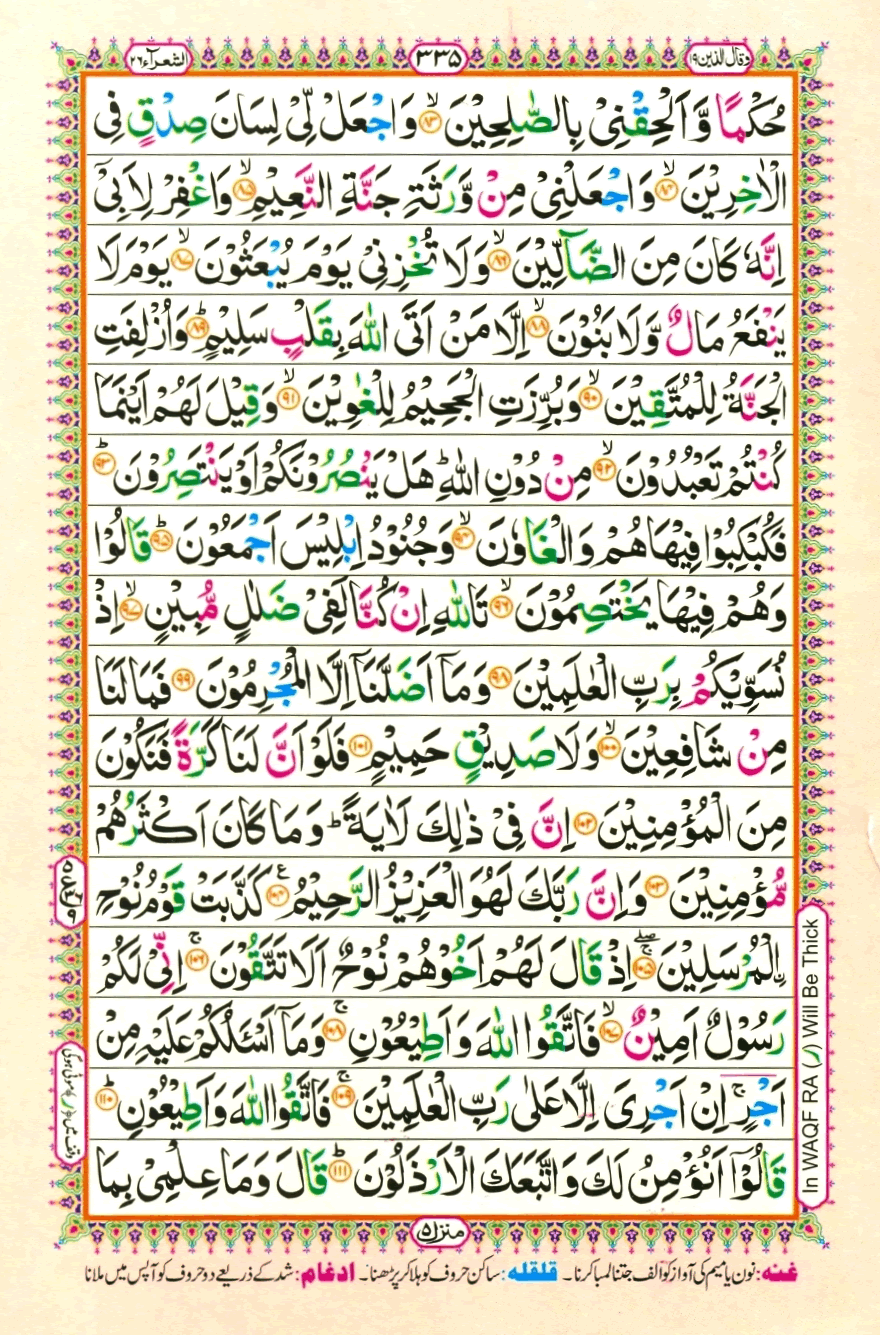 وقال الذین ۱۹
۳۳۵
الشعرآء ۲۶
حُكْمًا وَّ اَلْحِقْنِیْ بِالصّٰلِحِیْنَ ۙ﴿۸۳﴾ وَاجْعَلْ لِّیْ لِسَانَ صِدْقٍ فِی
الْاٰخِرِیْنَ ۙ﴿۸۴﴾ وَاجْعَلْنِیْ مِنْ وَّرَثَةِ جَنَّةِ النَّعِیْمِ ۙ﴿۸۵﴾ وَاغْفِرْ لِاَبِیْۤ
اِنَّهٗ كَانَ مِنَ الضَّآلِّیْنَ ۙ﴿۸۶﴾ وَلَا تُخْزِنِیْ یَوْمَ یُبْعَثُوْنَ ۙ﴿۸۷﴾ یَوْمَ لَا
یَنْفَعُ مَالٌ وَّلَا بَنُوْنَ ۙ﴿۸۸﴾ اِلَّا مَنْ اَتَی اللّٰهَ بِقَلْبٍ سَلِیْمٍ ؕ﴿۸۹﴾ وَاُزْلِفَتِ
الْجَنَّةُ لِلْمُتَّقِیْنَ ۙ﴿۹۰﴾ وَبُرِّزَتِ الْجَحِیْمُ لِلْغٰوِیْنَ ۙ﴿۹۱﴾ وَقِیْلَ لَهُمْ اَیْنَمَا
كُنْتُمْ تَعْبُدُوْنَ ۙ﴿۹۲﴾ مِنْ دُوْنِ اللّٰهِ ؕ هَلْ یَنْصُرُوْنَكُمْ اَوْ یَنْتَصِرُوْنَ ؕ﴿۹۳﴾
فَكُبْكِبُوْا فِیْهَا هُمْ وَالْغَاوٗنَ ۙ﴿۹۴﴾ وَجُنُوْدُ اِبْلِیْسَ اَجْمَعُوْنَ ؕ﴿۹۵﴾ قَالُوْا
وَهُمْ فِیْهَا یَخْتَصِمُوْنَ ۙ﴿۹۶﴾ تَاللّٰهِ اِنْ كُنَّا لَفِیْ ضَلٰلٍ مُّبِیْنٍ ۙ﴿۹۷﴾ اِذْ
نُسَوِّیْكُمْ بِرَبِّ الْعٰلَمِیْنَ ﴿۹۸﴾ وَمَاۤ اَضَلَّنَاۤ اِلَّا الْمُجْرِمُوْنَ ﴿۹۹﴾ فَمَا لَنَا
مِنْ شَافِعِیْنَ ۙ﴿۱۰۰﴾ وَلَا صَدِیْقٍ حَمِیْمٍ ﴿۱۰۱﴾ فَلَوْ اَنَّ لَنَا كَرَّةً فَنَكُوْنَ
مِنَ الْمُؤْمِنِیْنَ ﴿۱۰۲﴾ اِنَّ فِیْ ذٰلِكَ لَاٰیَةً ؕ وَمَا كَانَ اَكْثَرُهُمْ
مُّؤْمِنِیْنَ ﴿۱۰۳﴾ وَاِنَّ رَبَّكَ لَهُوَ الْعَزِیْزُ الرَّحِیْمُ ﴿۱۰۴﴾ ع كَذَّبَتْ قَوْمُ نُوْحِ
ِ۟الْمُرْسَلِیْنَ ﴿۱۰۵﴾ اِذْ قَالَ لَهُمْ اَخُوْهُمْ نُوْحٌ اَلَا تَتَّقُوْنَ ۚ﴿۱۰۶﴾ اِنِّیْ لَكُمْ
رَسُوْلٌ اَمِیْنٌ ۙ﴿۱۰۷﴾ فَاتَّقُوا اللّٰهَ وَاَطِیْعُوْنِ ۚ﴿۱۰۸﴾ وَمَاۤ اَسْـَٔلُكُمْ عَلَیْهِ مِنْ
اَجْرٍ ۚ اِنْ اَجْرِیَ اِلَّا عَلٰی رَبِّ الْعٰلَمِیْنَ ۚ﴿۱۰۹﴾ فَاتَّقُوا اللّٰهَ وَاَطِیْعُوْنِ ؕ﴿۱۱۰﴾
قَالُوْۤا اَنُؤْمِنُ لَكَ وَاتَّبَعَكَ الْاَرْذَلُوْنَ ؕ﴿۱۱۱﴾ قَالَ وَمَا عِلْمِیْ بِمَا
In WAQF RA (ر) Will Be Thick
وقف میں (ر) موٹی ہوگی
منزل ۵
غنه: نون یا میم کی آواز کو الف جتنا لمبا کرنا۔ قلقله: ساکن حروف کو ہلا کر پڑھنا۔ ادغام: شد کے ذریعے دو حروف کو آپس میں ملانا